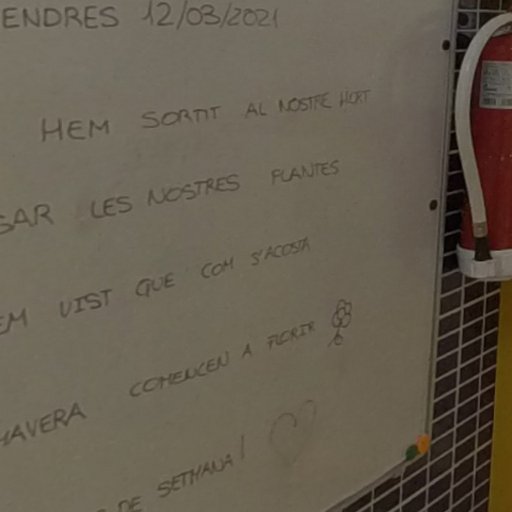 ENDRES 12/03/2021
HEM SORTIT AL NOSTRE HORT
SAR LES NOSTRES PLANTES
EM VIST QUE COM S'ACOSTA
MAVERA COMENCEN A FLORIR
DE SETMANA!